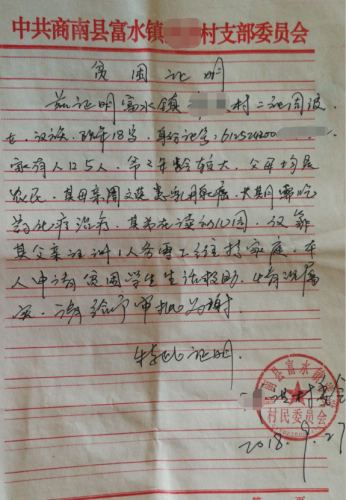 中共商南县富水镇 村支部委员会
贫困证明
兹证明富水镇 村二组周波
女，汉族，现年18岁，身份证号：612524200
家有人口5人，爷奶年龄较大，父母均是
农民，其母亲周文莲患乳腺癌，长期需吃
药化疗治病，其弟在读幼儿园，仅靠
其父亲 1人务零工维持家庭，本
人申请贫困学生生活救助，情况属
实，请给予审批为谢
特此证明
南县富水镇
村委会
村民委员会
2018.9.27